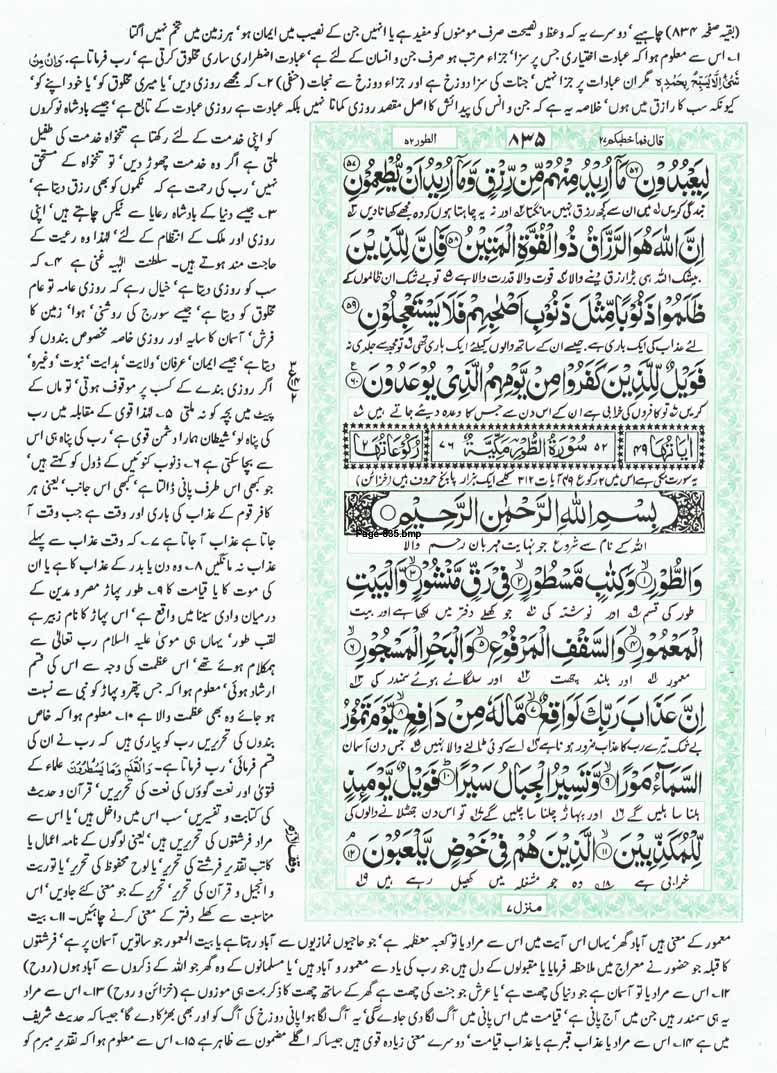 (بقیہ صفحہ ۸۳۴) چاہیے، دوسرے یہ کہ وعظ و نصیحت صرف مومنوں کو مفید ہے یا انہیں جن کے نصیب میں ایمان ہو، ہر زمین میں تخم نہیں اگتا
۱۔ اس سے معلوم ہوا کہ عبادت اختیاری جس پر سزا، جزاء مرتب ہو صرف جن و انسان کے لئے ہے، عبادت اضطراری ساری مخلوق کرتی ہے، رب فرماتا ہے۔ وَإِنْ مِنْ
شَيْءٍ إِلَّا يُسَبِّحُ بِحَمْدِهِ مگر ان عبادات پر جزا نہیں، جنات کی سزا دوزخ ہے اور جزاء دوزخ سے نجات (حنفی) ۲۔ کہ مجھے روزی دیں، یا میری مخلوق کو، یا خود اپنے کو،
کیونکہ سب کا رازق میں ہوں، خلاصہ یہ ہے کہ جن و انس کی پیدائش کا اصل مقصد روزی کمانا نہیں بلکہ عبادت ہے روزی عبادت کے تابع ہے، جیسے بادشاہ نوکروں
کو اپنی خدمت کے لئے رکھتا ہے تنخواہ خدمت کی طفیل
ملتی ہے اگر وہ خدمت چھوڑ دیں، تو تنخواہ کے مستحق
نہیں، رب کی رحمت ہے کہ نکموں کو بھی رزق دیتا ہے،
۳۔ جیسے دنیا کے بادشاہ رعایا سے ٹیکس چاہتے ہیں، اپنی
روزی اور ملک کے انتظام کے لئے، لہٰذا وہ رعیت کے
حاجت مند ہوتے ہیں۔ سلطنت الٰہیہ غنی ہے ۴۔ کہ
سب کو روزی دیتا ہے، خیال رہے کہ روزی عامہ تو عام
مخلوق کو دیتا ہے، جیسے سورج کی روشنی، ہوا، زمین کا
فرش، آسمان کا سایہ اور روزی خاصہ مخصوص بندوں کو
دیتا ہے، جیسے ایمان، عرفان، ولایت، ہدایت، نبوت، وغیرہ،
اگر روزی بندے کے کسب پر موقوف ہوتی، تو ماں کے
پیٹ میں بچہ کو نہ ملتی ۵۔ لہٰذا قوی کے مقابلہ میں رب
کی پناہ لو، شیطان ہمارا دشمن قوی ہے، رب کی پناہ ہی اس
سے بچا سکتی ہے ۶۔ ذنوب کنوئیں کے ڈول کو کہتے ہیں،
جو کبھی اس طرف پانی ڈالتا ہے، کبھی اس جانب، یعنی ہر
کافر قوم کے عذاب کی باری اور وقت ہے جب وقت آ
جاتا ہے عذاب آ جاتا ہے ۷۔ کہ وقت عذاب سے پہلے
عذاب نہ مانگیں ۸۔ وہ دن یا بدر کے عذاب کا ہے یا ان
کی موت کا یا قیامت کا ۹۔ طور پہاڑ مصر و مدین کے
درمیان وادی سینا میں واقع ہے، اس پہاڑ کا نام زبیر ہے
لقب طور، یہاں ہی موسیٰ علیہ السلام رب تعالیٰ سے
ہمکلام ہوئے تھے، اس عظمت کی وجہ سے اس کی قسم
ارشاد ہوئی، معلوم ہوا کہ جس پتھر و پہاڑ کو نبی سے نسبت
ہو جائے وہ بھی عظمت والا ہے ۱۰۔ معلوم ہوا کہ خاص
بندوں کی تحریریں رب کو پیاری ہیں کہ رب نے ان کی
قسم فرمائی، رب فرماتا ہے۔ وَالْقَلَمِ وَمَا يَسْطُرُونَ علماء کے
فتویٰ اور نعت گوؤں کی نعت کی تحریریں، قرآن و حدیث
کی کتابت و تفسیریں، سب اس میں داخل ہیں، یا اس سے
مراد فرشتوں کی تحریریں ہیں، یعنی لوگوں کے نامہ اعمال یا
کاتب تقدیر فرشتے کی تحریر، یا لوح محفوظ کی تحریر، یا توریت
و انجیل و قرآن کی تحریر، تحریر کے جو معنی کئے جاویں، اس
مناسبت سے کھلے دفتر کے معنی کرنے چاہئیں۔ ۱۱۔ بیت
قال فما خطبکم ۲۷ ۸۳۵ الطور ۵۲
لِيَعْبُدُونِ ﴿۵۶﴾ مَا أُرِيدُ مِنْهُمْ مِنْ رِزْقٍ وَمَا أُرِيدُ أَنْ يُطْعِمُونِ ﴿۵۷﴾
بندگی کریں میں ان سے کچھ رزق نہیں مانگتا اور نہ یہ چاہتا ہوں کہ وہ مجھے کھانا دیں
إِنَّ اللَّهَ هُوَ الرَّزَّاقُ ذُو الْقُوَّةِ الْمَتِينُ ﴿۵۸﴾ فَإِنَّ لِلَّذِينَ
بیشک اللہ ہی بڑا رزق دینے والا قوت والا قدرت والا ہے تو بے شک ان ظالموں کے
ظَلَمُوا ذَنُوبًا مِثْلَ ذَنُوبِ أَصْحَابِهِمْ فَلَا يَسْتَعْجِلُونِ ﴿۵۹﴾
لئے عذاب کی ایک باری ہے۔ جیسے ان کے ساتھ والوں کیلئے ایک باری تھی تو مجھ سے جلدی نہ
فَوَيْلٌ لِلَّذِينَ كَفَرُوا مِنْ يَوْمِهِمُ الَّذِي يُوعَدُونَ ﴿۶۰﴾
کریں تو کافروں کی خرابی ہے ان کے اس دن سے جس کا وعدہ دیئے جاتے ہیں
اٰیَاتُهَا ۴۹ ۵۲ سُوْرَةُ الطُّوْرِ مَكِّيَّةٌ ۷۶ رُكُوْعَاتُهَا ۲
یہ سورت مکی ہے اس میں ۲ رکوع ۴۹ آیات ۳۱۲ کلمے ایک ہزار پانچ حروف ہیں (خزائن)
بِسْمِ اللَّهِ الرَّحْمٰنِ الرَّحِيمِ
Page-835.bmp
اللہ کے نام سے شروع جو نہایت مہربان رحم والا
وَالطُّورِ ﴿۱﴾ وَكِتٰبٍ مَسْطُورٍ ﴿۲﴾ فِي رَقٍّ مَنْشُورٍ ﴿۳﴾ وَالْبَيْتِ
طور کی قسم اور نوشتہ کی جو کھلے دفتر میں لکھا ہے اور بیت
الْمَعْمُورِ ﴿۴﴾ وَالسَّقْفِ الْمَرْفُوعِ ﴿۵﴾ وَالْبَحْرِ الْمَسْجُورِ ﴿۶﴾
معمور اور بلند چھت اور سلگائے ہوئے سمندر کی
إِنَّ عَذَابَ رَبِّكَ لَوَاقِعٌ ﴿۷﴾ مَا لَهُ مِنْ دَافِعٍ ﴿۸﴾ يَوْمَ تَمُورُ
بے شک تیرے رب کا عذاب ضرور ہونا ہے اسے کوئی ٹالنے والا نہیں جس دن آسمان
السَّمَاءُ مَوْرًا ﴿۹﴾ وَتَسِيرُ الْجِبَالُ سَيْرًا ﴿۱۰﴾ فَوَيْلٌ يَوْمَئِذٍ
ہلنا سا ہلیں گے اور پہاڑ چلنا سا چلیں گے تو اس دن جھٹلانے والوں کی
لِلْمُكَذِّبِينَ ﴿۱۱﴾ الَّذِينَ هُمْ فِي خَوْضٍ يَلْعَبُونَ ﴿۱۲﴾
خرابی ہے وہ جو مشغلہ میں کھیل رہے ہیں
منزل ۷
وقف لازم
معمور کے معنی ہیں آباد گھر، یہاں اس آیت میں اس سے مراد یا تو کعبہ معظمہ ہے، جو حاجیوں نمازیوں سے آباد رہتا ہے یا بیت المعمور جو ساتویں آسمان پر ہے، فرشتوں
کا قبلہ جو حضور نے معراج میں ملاحظہ فرمایا یا مقبولوں کے دل ہیں جو رب کی یاد سے معمور و آباد ہیں، یا مسلمانوں کے وہ گھر جو اللہ کے ذکروں سے آباد ہوں (روح)
۱۲۔ اس سے مراد یا تو آسمان ہے جو دنیا کی چھت ہے، یا عرش جو جنت کی چھت ہے گھر کے ساتھ چھت کا ذکر بہت ہی موزوں ہے (خزائن و روح) ۱۳۔ اس سے مراد
یہ ہی سمندر ہیں جن میں آج پانی ہے، قیامت میں اس پانی میں آگ لگا دی جاوے گی، یہ آگ لگا ہوا پانی دوزخ کی آگ کو اور بھی بھڑکا دے گا، جیسا کہ حدیث شریف
میں ہے ۱۴۔ اس سے مراد یا عذاب قبر ہے یا عذاب قیامت، دوسرے معنی زیادہ قوی ہیں جیسا کہ اگلے مضمون سے ظاہر ہے ۱۵۔ اس سے معلوم ہوا کہ تقدیر مبرم کو